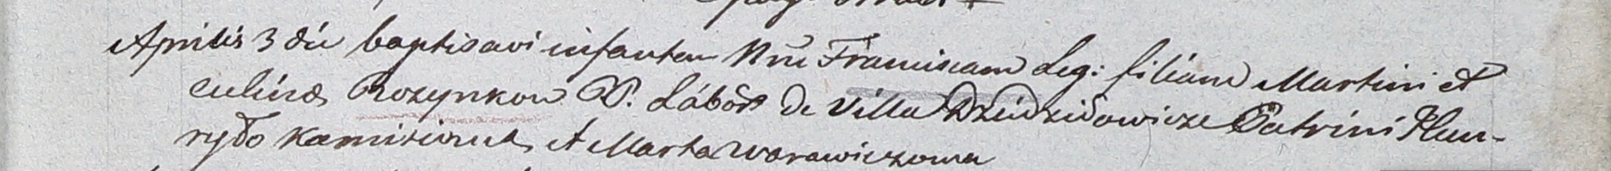 Aprilis 3 die baptisavi infantem Nne Franciscam Leg: filiam Martini et
culinæ Rozynkow V. Labor. De Villa Dzidziłowicze Patrini Hau-
ryło et Marta Worawiczowa